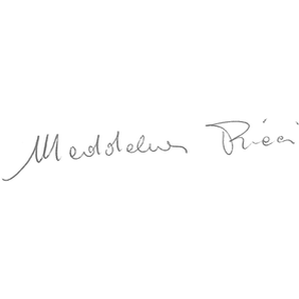 Maddalena Ricci